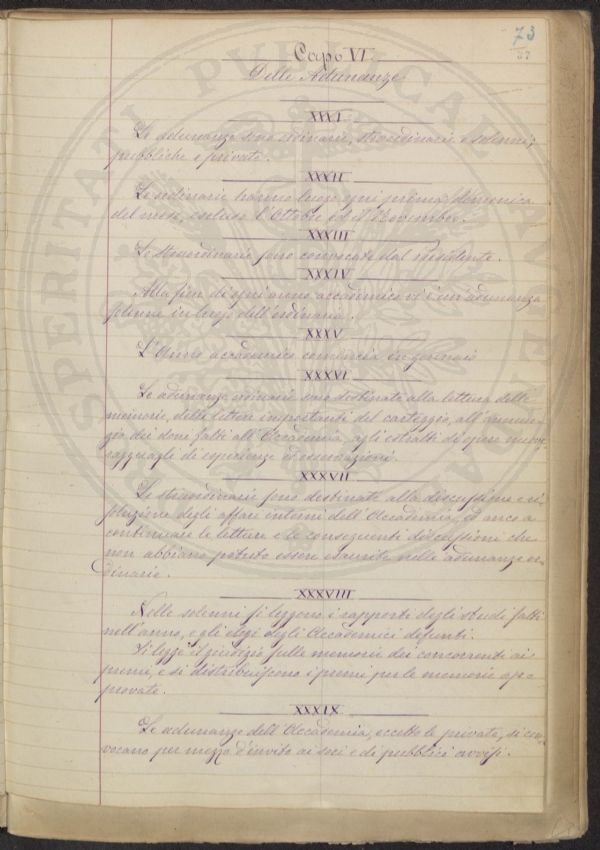 73
37
Capo VI
Delle Adunanze
XXXI
Le adunanze sono ordinarie, straordinarie e solenni;
pubbliche e private.
XXXII
Le ordinarie hanno luogo ogni prima Domenica
del mese, escluso l'Ottobre ed il Novembre.
XXXIII
Le straordinarie sono convocate dal Presidente.
XXXIV
Alla fine di ogni anno accademico vi è un'adunanza
solenne in luogo dell'ordinaria.
XXXV
L'Anno accademico comincia in gennaio
XXXVI
Le adunanze ordinarie sono destinate alla lettura delle
memorie, delle lettere importanti del carteggio, all'annun-
zio dei doni fatti all'Accademia, agli estratti di opere nuove
ragguagli di esperienze ed osservazioni.
XXXVII
Le straordinarie sono destinate alla discussione e ri-
soluzione degli affari interni dell'Accademia, ed anco a
continuare le letture e le conseguenti discussioni che
non abbiano potuto essere esaurite nelle adunanze or-
dinarie.
XXXVIII
Nelle solenni si leggono i rapporti degli studi fatti
nell'anno, e gli elogi degli Accademici defunti.
Si legge il giudizio sulle memorie dei concorrenti ai
premi, e si distribuiscono i premi per le memorie ap-
provate.
XXXIX
Le adunanze dell'Accademia, eccetto le private, si con-
vocano per mezzo d'invito ai soci e di pubblici avvisi.
PROSPERITATI PUBLICAE AUGENDAE